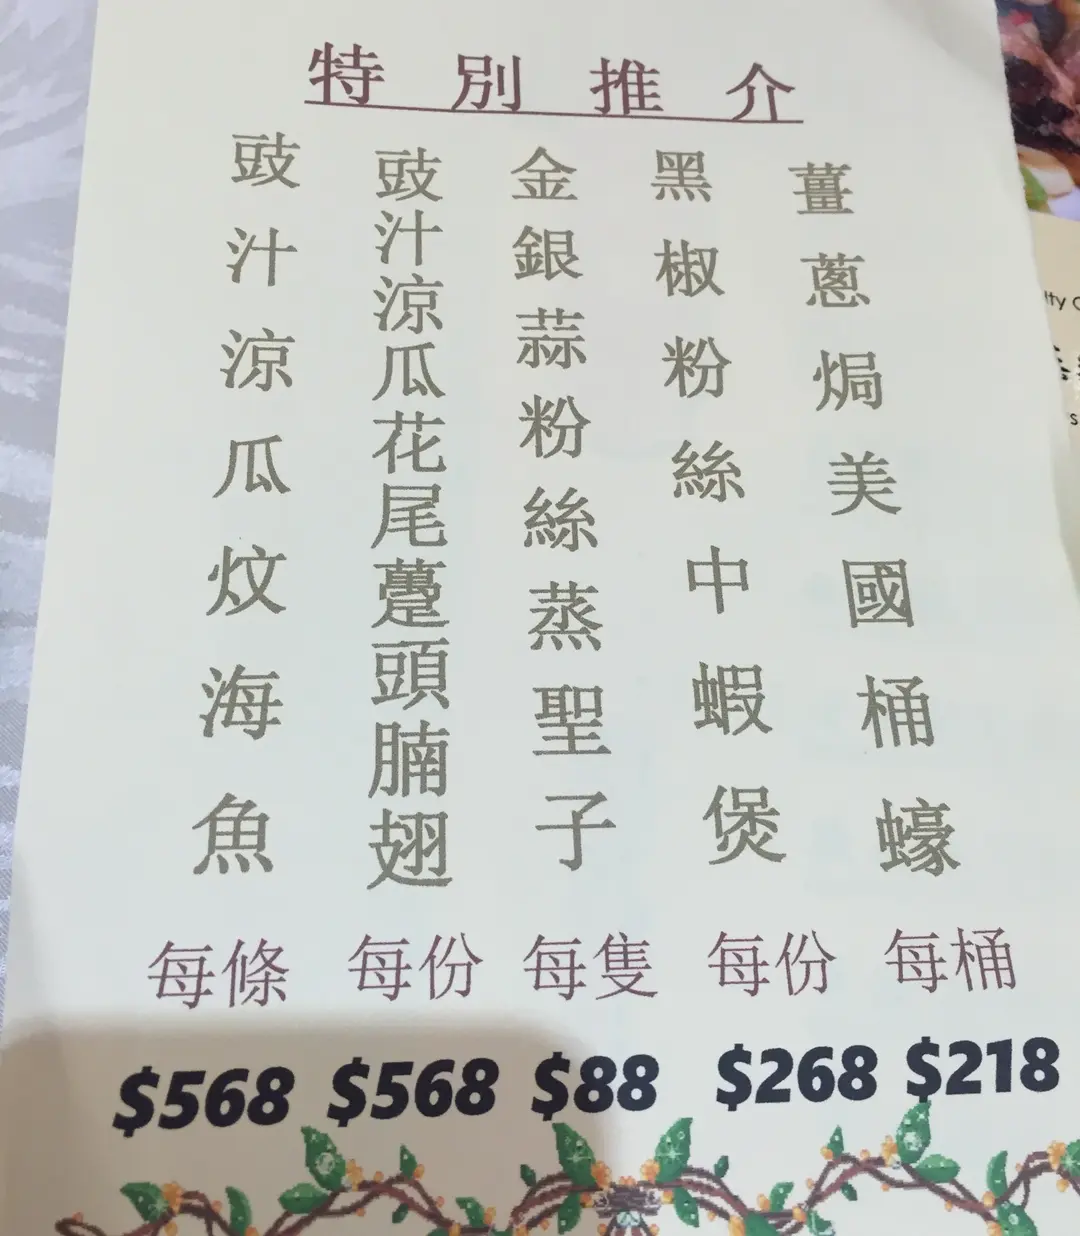 特別推介
薑蔥焗美國桶蠔
黑椒粉絲中蝦煲
金銀蒜粉絲蒸聖子
豉汁涼瓜花尾躉頭腩翅
豉汁涼瓜炆海魚
每條 每份 每隻 每份 每桶
$568 $568 $88 $268 $218